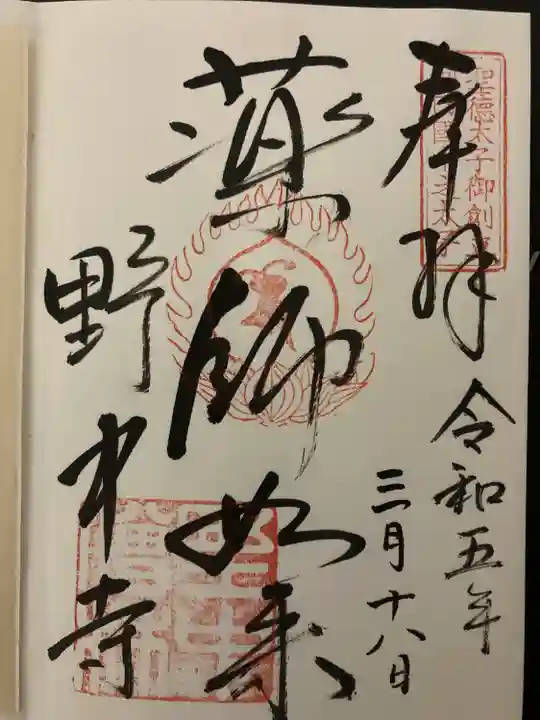 奉拝
令和五年
三月十八日
薬師如来
野中寺
聖徳太子御創